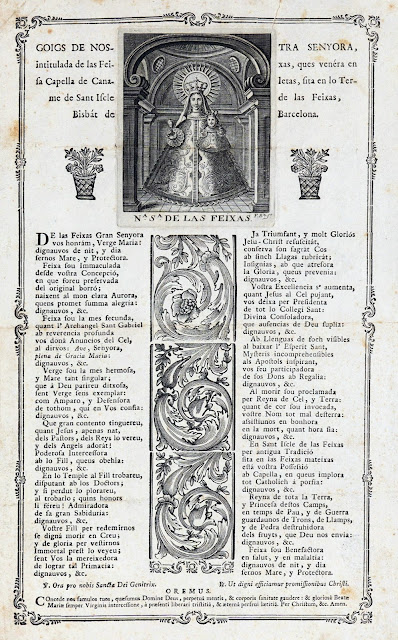 GOIGS DE NOS- TRA SENYORA,
intitulada de las Fei- xas, ques venéra en
sa Capella de Cana- letas, sita en lo Ter-
me de Sant Iscle de las Feixas,
Bisbát de Barcelona.
Nª. Sª. DE LAS FEIXAS.
DE las Feixas Gran Senyora
vos honram, Verge Maria:
dignauvos de nit, y dia
sernos Mare, y Protectora.
Feixa sou Immaculada
desde vostra Concepció,
en que soreu preservada
del original borró;
naixent al mon clara Aurora,
ques promet summa alegria:
dignauvos, &c.
Feixa sou la mes fecunda,
quant l' Archangel Sant Gabriel
ab reverencia profunda
vos doná Anuncios del Cel,
al dirvos: Ave, Senyora,
plena de Gracia Maria:
dignauvos, &c.
Verge sou la mes hermosa,
y Mare tant singular;
que á Deu parireu ditxosa,
sent Verge sens exemplar:
com Amparo, y Defensora
de tothom, qui en Vos confia:
dignauvos, &c.
Que gran contento tingueren,
quant Jesus, apenas nat,
dels Pastors, dels Reys lo vereu,
y dels Angels adorat!
Poderosa Intercessora
ab lo Fill, queus obehia:
dignauvos, &c.
En lo Temple al Fill trobareu,
disputant ab los Doctors;
y si perdut lo plorareu,
al trobarlo, quins honors
li fereu! Admiradora
de sa gran Sabiduria:
dignauvos, &c.
Vostre Fill per redemirnos
se digná morir en Creu;
y de gloria per vestirnos
Immortal prest lo veyeu;
sent Vos la mereixedora
de lograr tal Primacia:
dignauvos, &c.
Ja Triumfant, y molt Gloriós
Jesu-Christ resuscitát,
conserva son sagrat Cos
ab sinch Llagas rubricát;
Insignias, ab que atresora
la Gloria, queus prevenia:
dignauvos, &c.
Vostra Excelencia s' aumenta,
quant Jesus al Cel pujant,
vos deixa per Presidenta
de tot lo Collegi Sant:
Divina Consoladora,
que ausencias de Deu suplia:
dignauvos, &c.
Ab Llenguas de foch visibles
al baixar l' Esperit Sant,
Mysteris incomprehensibles
als Apostols inspirant,
vos feu participadora
de sos Dons ab Regalia:
dignauvos, &c.
Al morir sou proclamada
per Reyna de Cel, y Terra:
quant de cor sou invocada,
vostre Nom tot mal desterra:
assistiunos en bonhora
en la mort, quant hora sia:
dignauvos, &c.
En Sant Iscle de las Feixas
per antigua Tradició
sita en las Feixas mateixas
está vostra Possessió
ab Capella, en queus implora
tot Catholich á porfia:
dignauvos, &c.
Reyna de tota la Terra,
y Princesa destos Camps,
en temps de Pau, y de Guerra
guardaunos de Trons, de Llamps,
y de Pedra destruhidora
dels fruyts, que Deu nos envia:
dignauvos, &c.
Feixa sou Benefactora
en salut, y en malaltia:
dignauvos de nit, y dia
sernos Mare, y Protectora.
℣. Ora pro nobis Sancta Dei Genitrix. ℟. Ut digni efficiamur promissionibus Christi.
OREMUS.
COncede nos famulos tuos, quæsumus Domine Deus, perpetua mentis, & corporis sanitate gaudere: & gloriosæ Beatæ
Mariæ semper Virginis intercessione, á præsenti liberari tristitia, & æterna perfrui lætitia. Per Christum, &c. Amen.